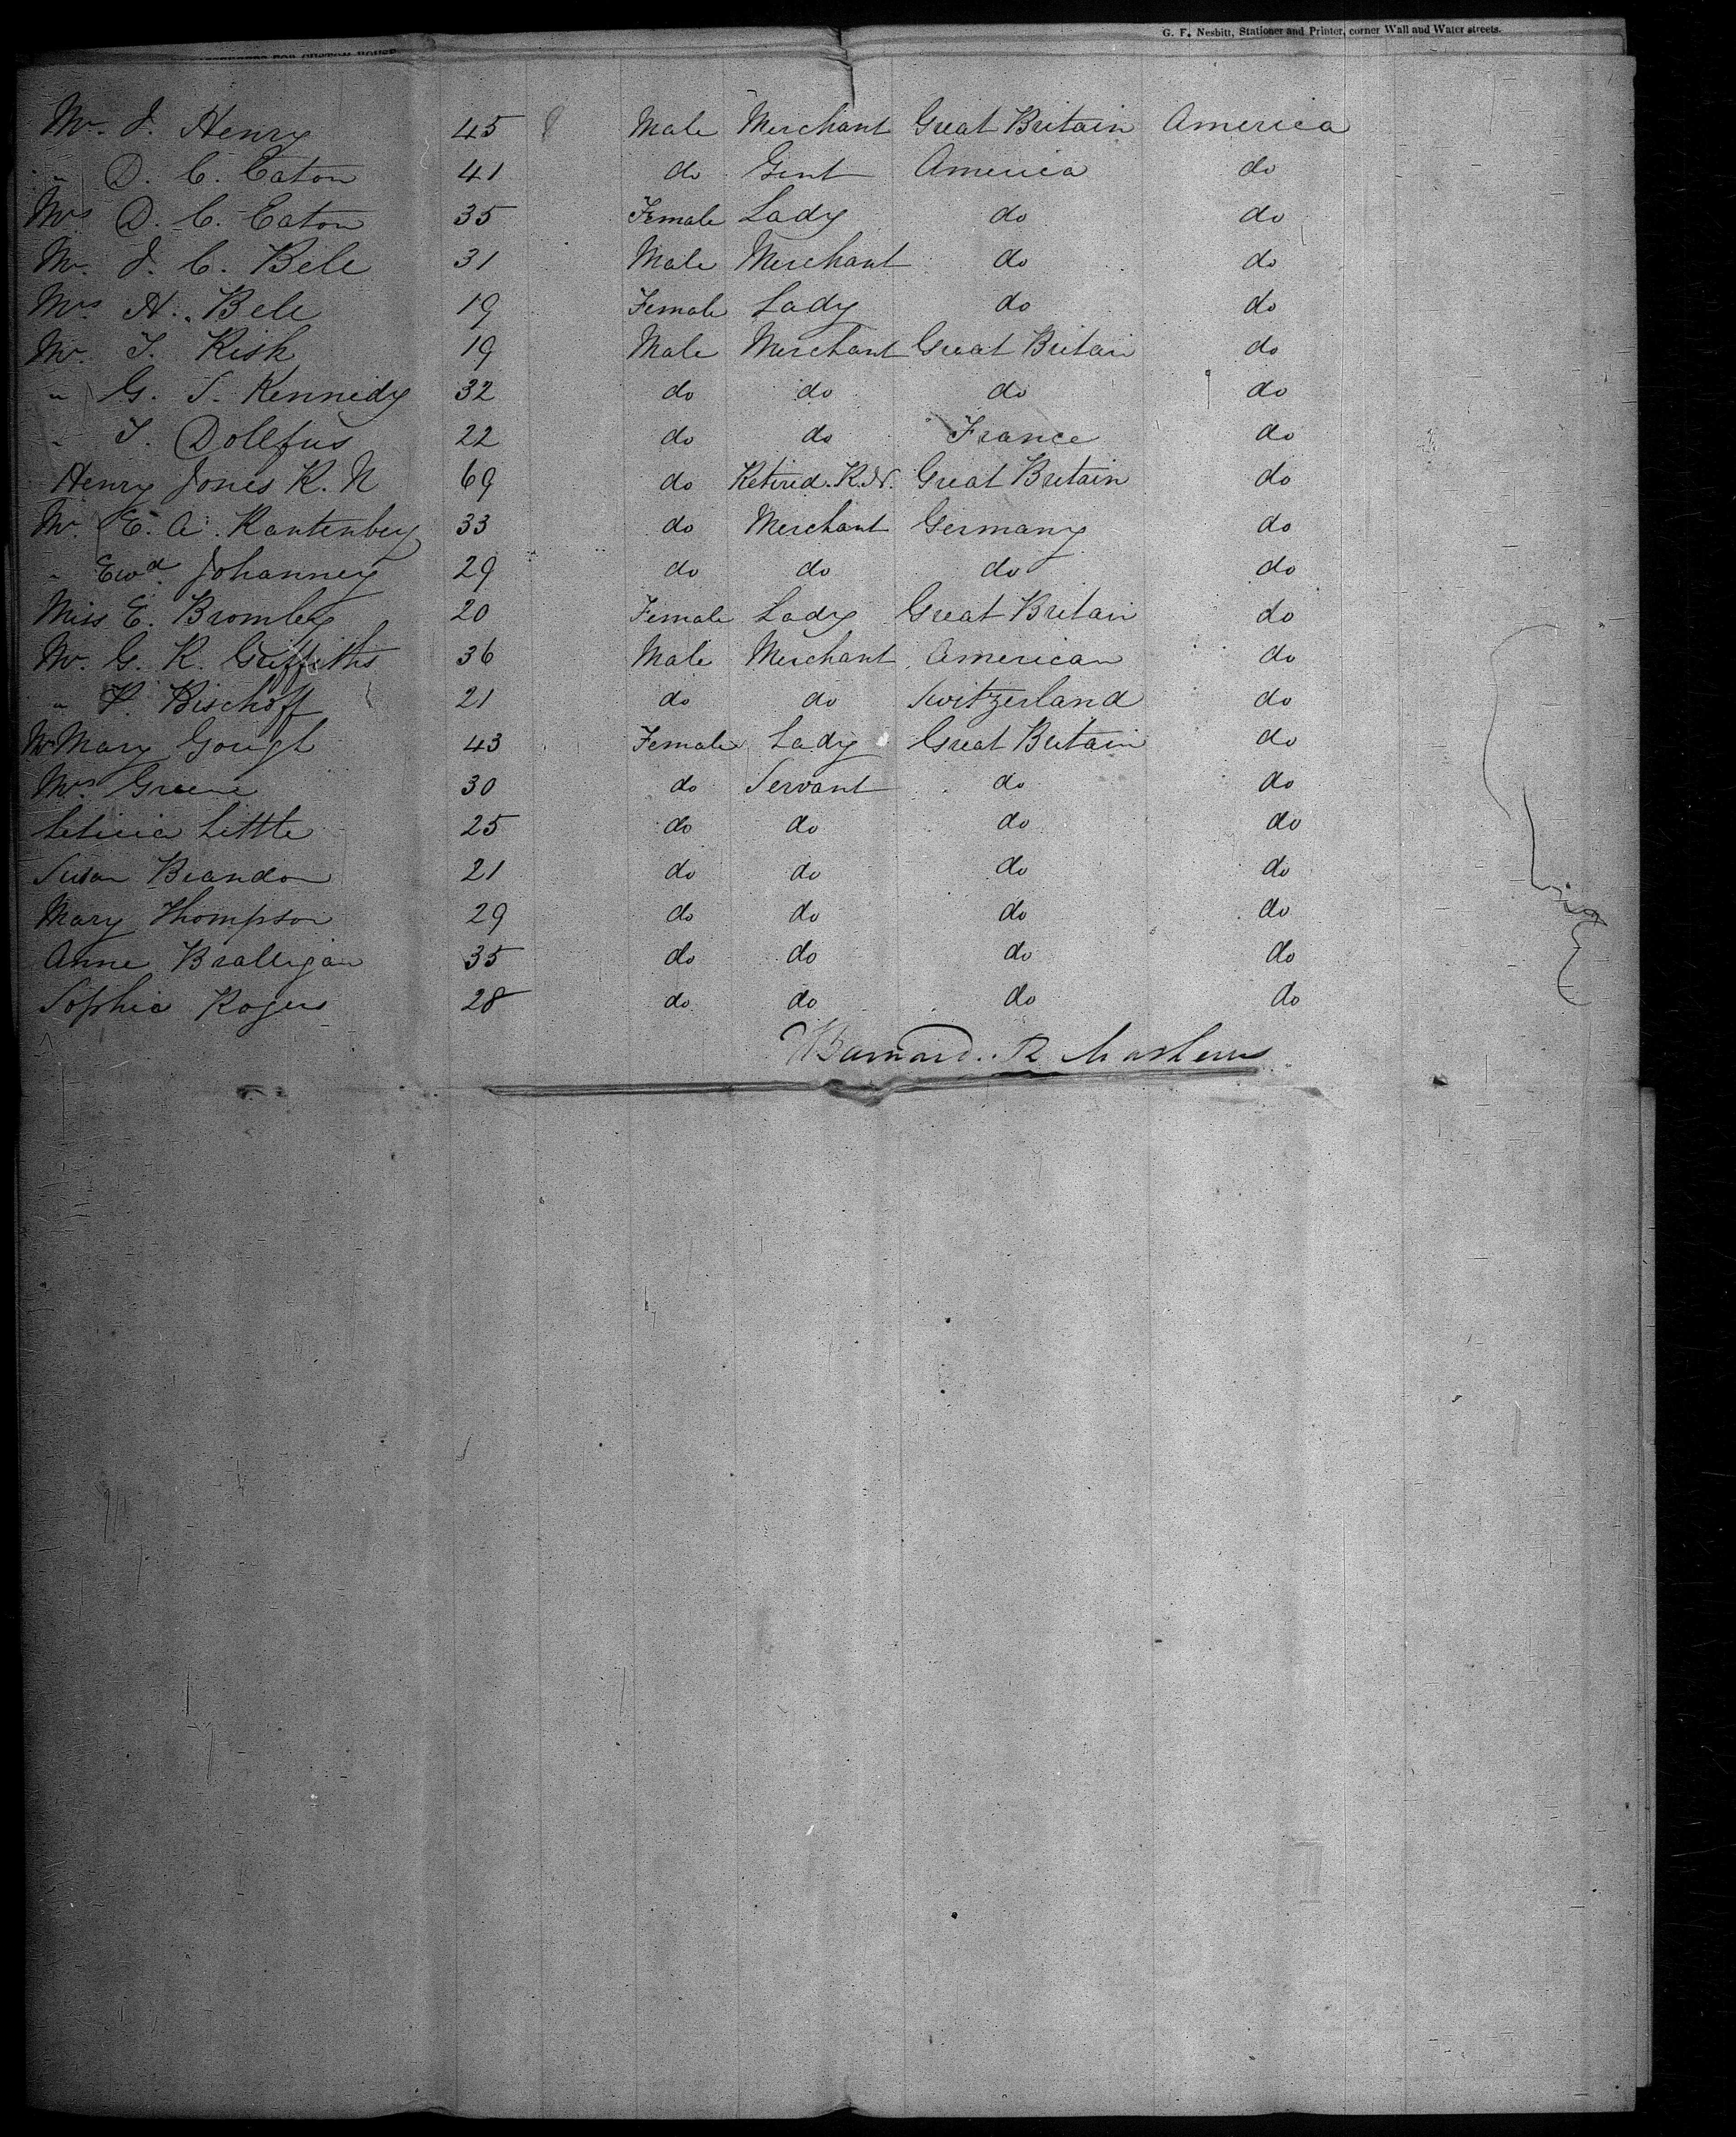 G. F. Nesbitt, Stationer and Printer, corner Wall and Water streets.
Mr. J. Henry 45 Male Merchant Great Britain America
" D. C. Eaton 41 do Gent America do
Mrs D. C. Eaton 35 Female Lady do do
Mr. J. C. Bell 31 Male Merchant do do
Mrs A. Bell 19 Female Lady do do
Mr. T. Kisk 19 Male Merchant Great Britain do
" G. S. Kennedy 32 do do do do
" T. Dollfus 22 do do France do
Henry Jones R. N 69 do Retired R.N. Great Britain do
Mr E. A. Rautenberg 33 do Merchant Germany do
" Ewd. Johanney 29 do do do do
Miss E. Bromley 20 Female Lady Great Britain do
Mr. G. R. Griffiths 36 Male Merchant American do
" Bischoff 21 do do Switzerland do
Mrs Mary Gough 43 Female Lady Great Britain do
Mrs Greene 30 do Servant do do
Leticia Little 25 do do do do
Susan Brandon 21 do do do do
Mary Thompson 29 do do do do
Anne Bralligan 35 do do do do
Sophia Rogers 28 do do do do
Barnard R. Mathews